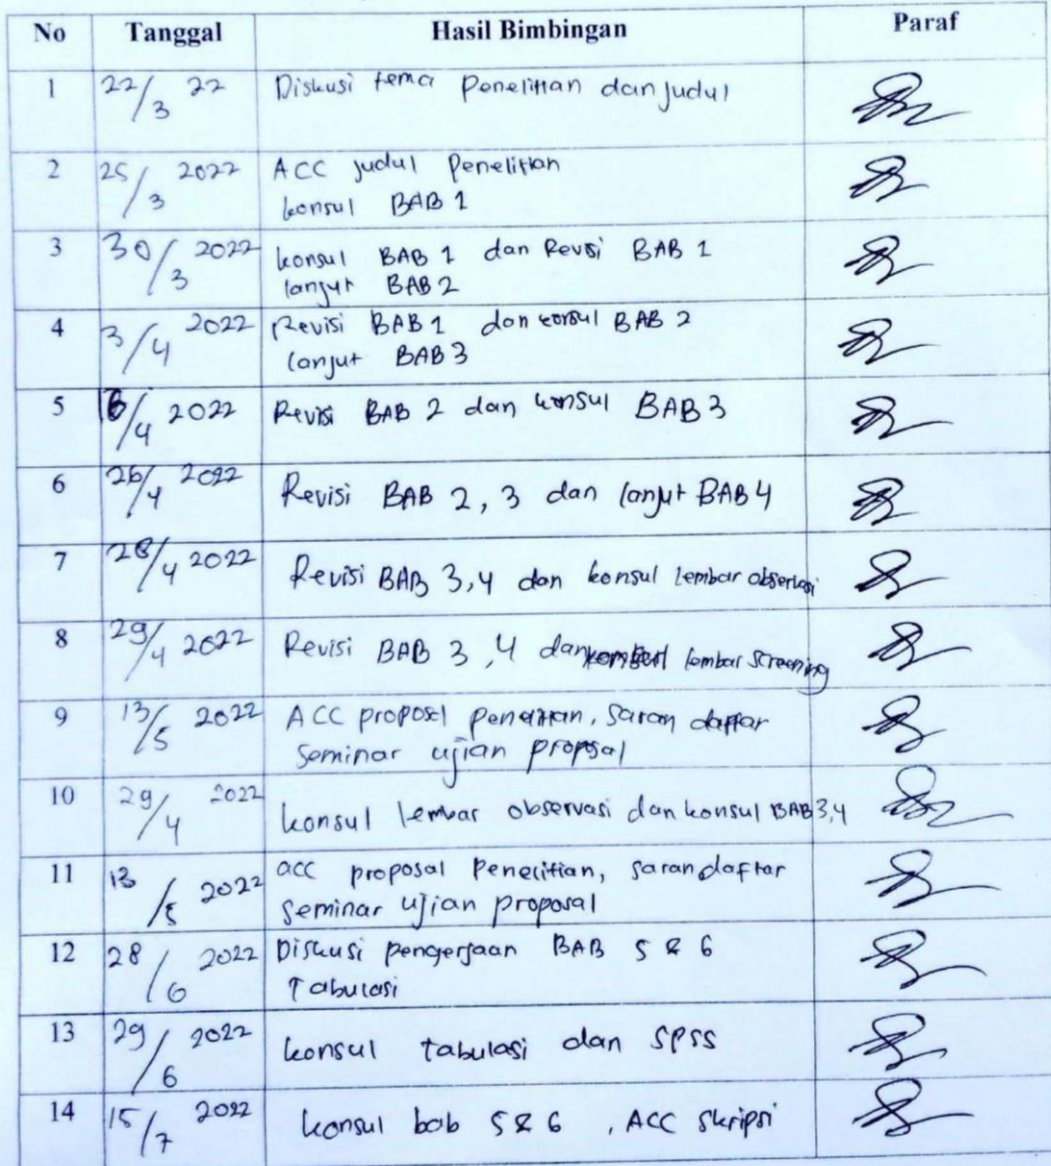 No Tanggal Hasil Bimbingan Paraf
1 22/3 22 Diskusi tema Penelitian dan Judul
2 25/3 2022 ACC judul Penelitian
konsul BAB 1
3 30/3 2022 konsul BAB 1 dan Revisi BAB 1
lanjut BAB 2
4 3/4 2022 Revisi BAB 1 dan konsul BAB 2
lanjut BAB 3
5 6/4 2022 Revisi BAB 2 dan konsul BAB 3
6 26/4 2022 Revisi BAB 2, 3 dan lanjut BAB 4
7 28/4 2022 Revisi BAB 3,4 dan konsul lembar observasi
8 29/4 2022 Revisi BAB 3,4 dan lembar screening
9 13/5 2022 ACC proposal penelitian, saran daftar
seminar ujian proposal
10 29/4 2022 konsul lembar observasi dan konsul BAB 3,4
11 13/5 2022 acc proposal Penelitian, saran daftar
seminar ujian proposal
12 28/6 2022 Diskusi pengerjaan BAB 5 & 6
Tabulasi
13 29/6 2022 konsul tabulasi dan SPSS
14 15/7 2022 konsul bab 5 & 6 , ACC skripsi